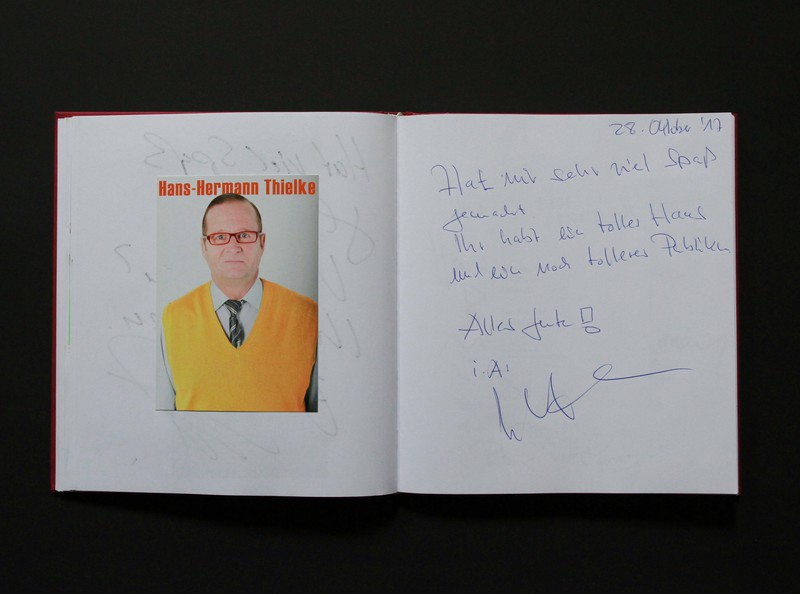 Hans-Hermann Thielke
28. Oktober '17
Hat mir sehr viel Spaß
gemacht
Ihr habt ein tolles Haus
und ein noch tolleres Publikum
Alles Gute!
i.A.